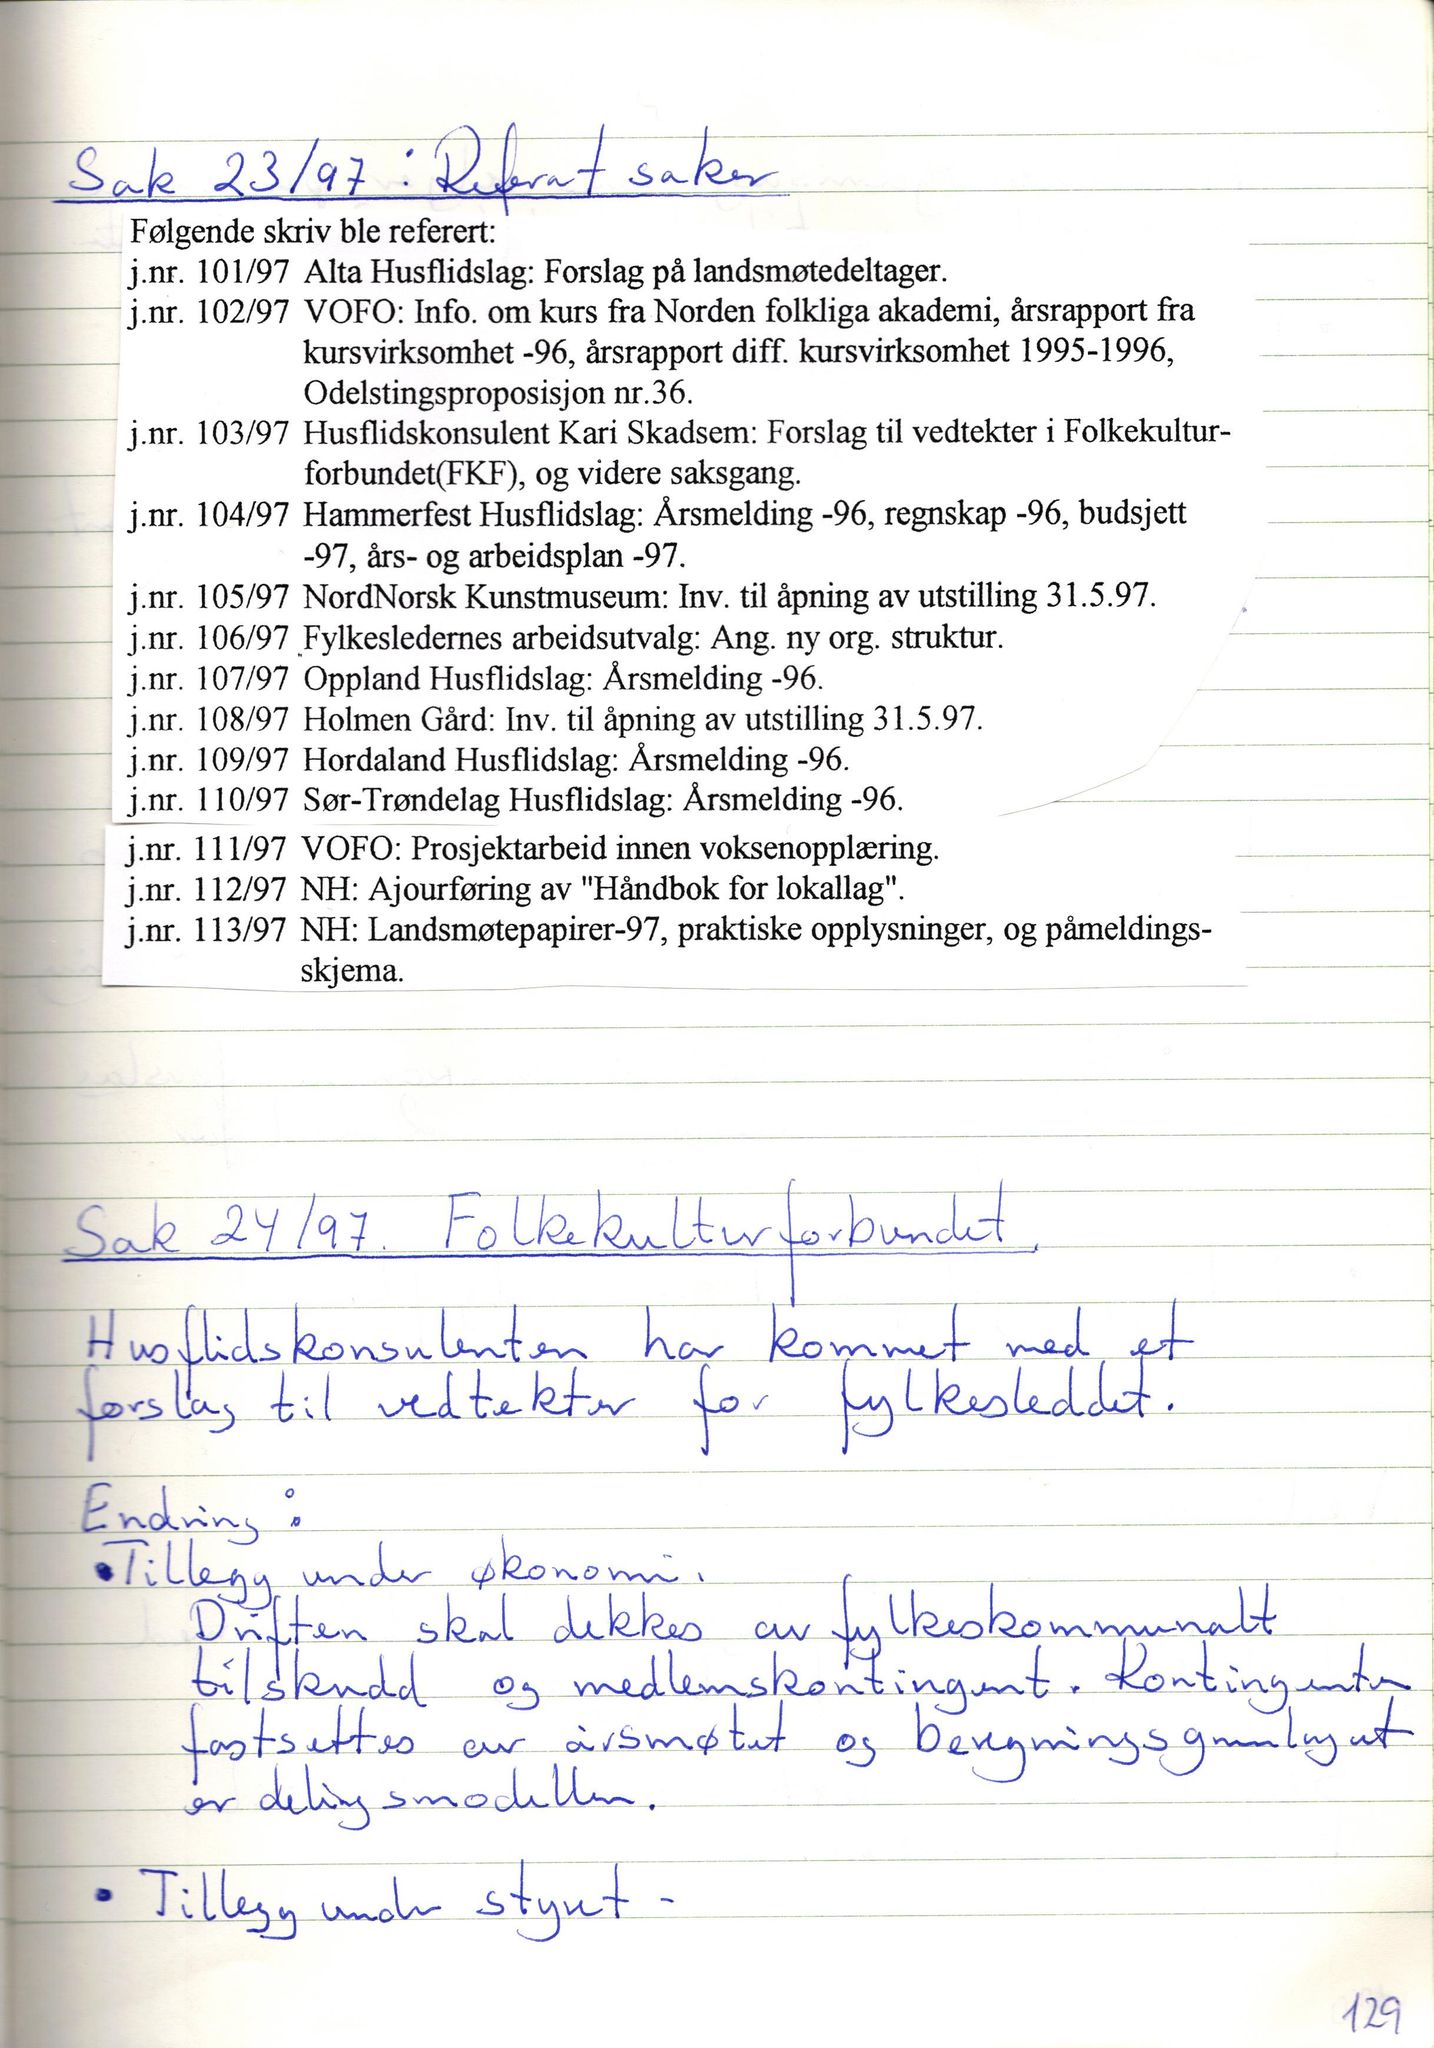 Sak 23/97 : Referat saker
Følgende skriv ble referert:
j.nr. 101/97 Alta Husflidslag: Forslag på landsmøtedeltager.
j.nr. 102/97 VOFO: Info. om kurs fra Norden folkliga akademi, årsrapport fra
kursvirksomhet -96, årsrapport diff. kursvirksomhet 1995-1996,
Odelstingsproposisjon nr.36.
j.nr. 103/97 Husflidskonsulent Kari Skadsem: Forslag til vedtekter i Folkekultur-
forbundet(FKF), og videre saksgang.
j.nr. 104/97 Hammerfest Husflidslag: Årsmelding -96, regnskap -96, budsjett
-97, års- og arbeidsplan -97.
j.nr. 105/97 NordNorsk Kunstmuseum: Inv. til åpning av utstilling 31.5.97.
j.nr. 106/97 Fylkesledernes arbeidsutvalg: Ang. ny org. struktur.
j.nr. 107/97 Oppland Husflidslag: Årsmelding -96.
j.nr. 108/97 Holmen Gård: Inv. til åpning av utstilling 31.5.97.
j.nr. 109/97 Hordaland Husflidslag: Årsmelding -96.
j.nr. 110/97 Sør-Trøndelag Husflidslag: Årsmelding -96.
j.nr. 111/97 VOFO: Prosjektarbeid innen voksenopplæring.
j.nr. 112/97 NH: Ajourføring av "Håndbok for lokallag".
j.nr. 113/97 NH: Landsmøtepapirer-97, praktiske opplysninger, og påmeldings-
skjema.
Sak 24/97. Folkekulturforbundet.
Husflidskonsulenten har kommet med et
forslag til vedtekter for fylkesleddet.
Endring :
• Tillegg under økonomi.
Driften skal dekkes av fylkeskommunalt
tilskudd og medlemskontingent. Kontingenten
fastsettes av årsmøtet og beregningsgrunlaget
er delingsmodellen.
• Tillegg under styret -
129